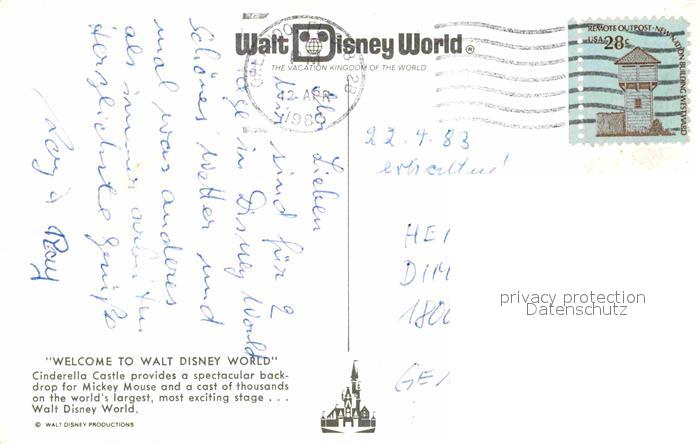 Walt Disney World®
THE VACATION KINGDOM OF THE WORLD
12 APR
1983
REMOTE OUTPOST·NEW NATION BUILDING WESTWARD
USA 28c
22.4.83
erhalten!
Ihr Lieben
Wir sind für 2
Tage in Disney World
Schönes Wetter und
mal was anderes
als immer arbeiten
Herzlichste Grüße
HEI
DIM
180
GE
privacy protection
Datenschutz
"WELCOME TO WALT DISNEY WORLD"
Cinderella Castle provides a spectacular back-
drop for Mickey Mouse and a cast of thousands
on the world's largest, most exciting stage . . .
Walt Disney World.
© WALT DISNEY PRODUCTIONS